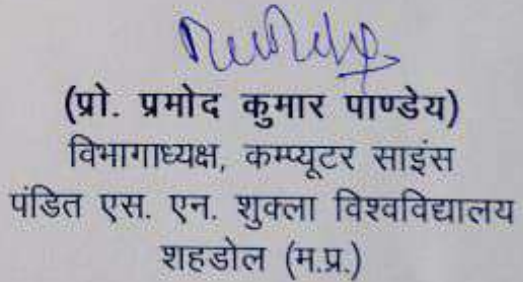 (प्रो. प्रमोद कुमार पाण्डेय)
विभागाध्यक्ष, कम्प्यूटर साइंस
पंडित एस. एन. शुक्ला विश्वविद्यालय
शहडोल (म.प्र.)